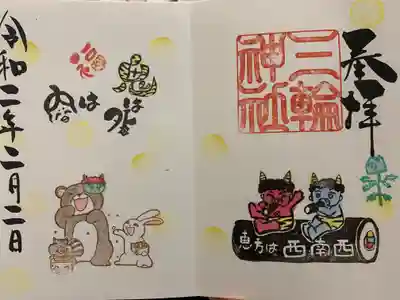 奉拝
三輪神社
恵方は西南西
は外
福は内
令和二年二月二日